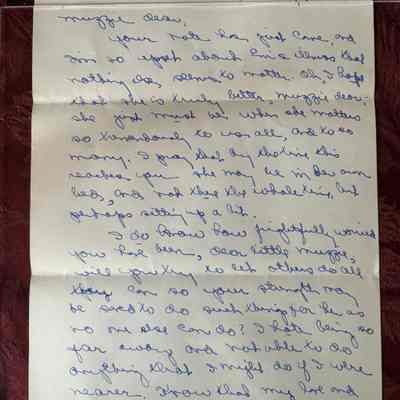 muzzie dear,
Your note has just come, and
I'm so upset about illness that
nothing else seems to matter. Oh, I hope
that she is truly better, muzzie dear.
She just must be, when she matters
so to us all, and to so
many. I pray that by the time this
reaches you she may be in her own
bed, and not there the whole time, but
perhaps sitting up a bit.
I do know how frightfully worried
you have been, dear little muzzie,
will you try to let others do all
they can so your strength may
be saved to do such things for her as
no one else can do? I hate being so
far away and not able to do
anything that I might do if I were
nearer. I know that my love and